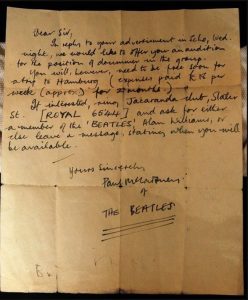 Dear Sir,
In reply to your advertisement in Echo, Wed.
night, we would like to offer you an audition
for the position of drummer in the group.
You will, however, need to be free soon for
a trip to Hamburg (expenses paid £18 per
week (approx.) for 2 months.)
If interested, ring Jacaranda club, Slater
St. [ROYAL 6544] and ask for either
a member of the 'BEATLES', Alan Williams, or
else leave a message, stating when you will
be available.
Yours Sincerely,
Paul McCartney
of
THE BEATLES